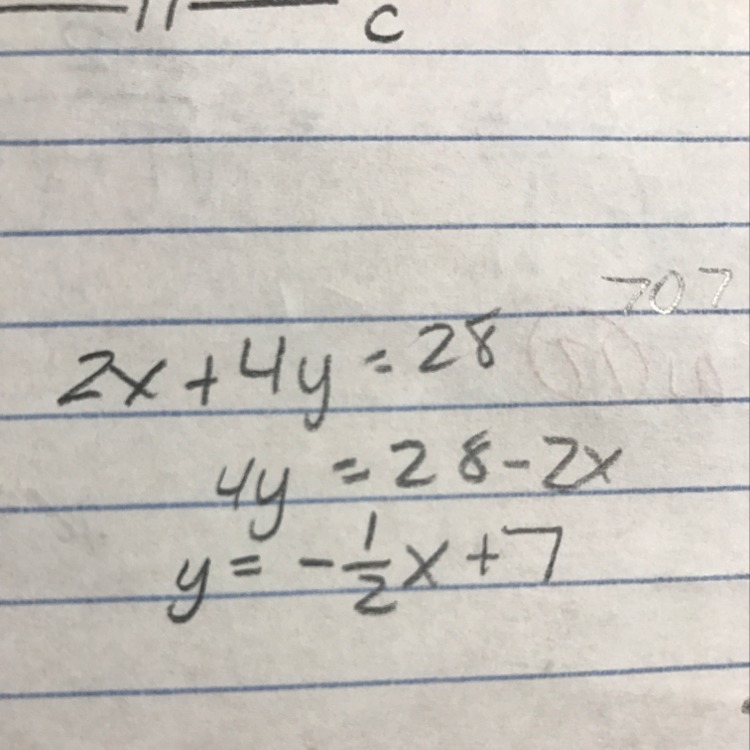 c
707
2x + 4y = 28
4y = 28 - 2x
y = -1/2x + 7